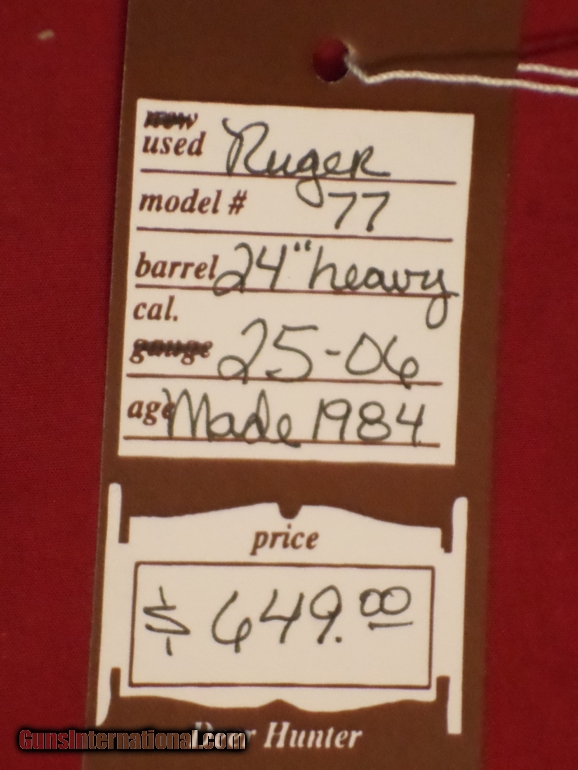 new
used Ruger
model # 77
barrel 24" heavy
cal.
gauge 25-06
age Made 1984
price
$ 649.00
Hunter
GunsInternational.com